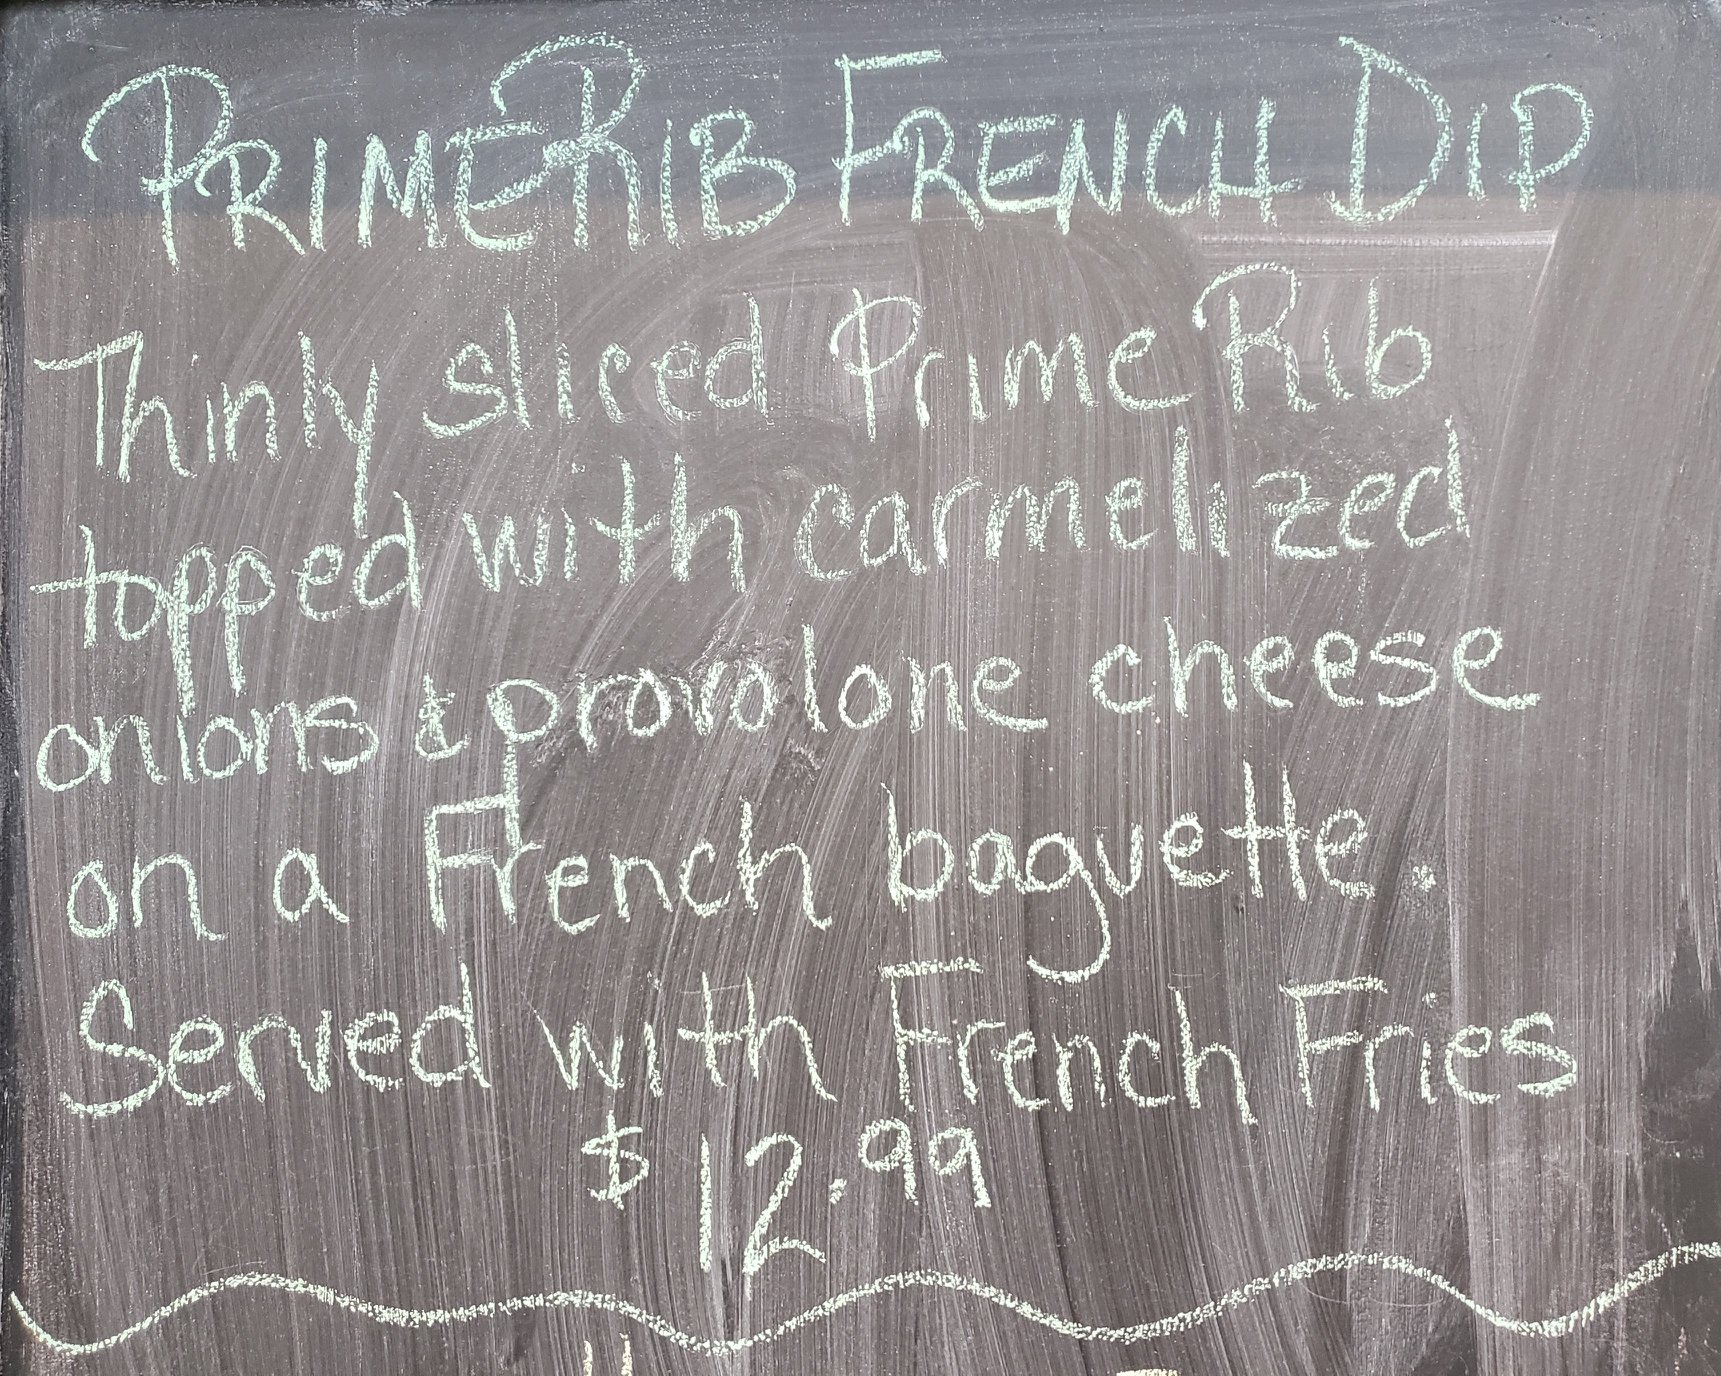 PRIME RIB FRENCH DIP
Thinly sliced Prime Rib
topped with carmelized
onions & provolone cheese
on a French baguette.
Served with French Fries
$12.99